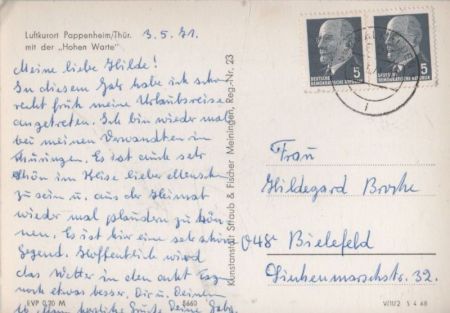 Luftkurort Pappenheim/Thür.
mit der „Hohen Warte"
3.5.71.
Meine liebe Hilde!
In diesem Jahr habe ich schon
recht früh meine Urlaubsreise
angetreten. Ich bin wieder mal
bei meinen Verwandten in
Thüringen. Es ist auch sehr
schön im Kreise lieber Menschen
zu sein u. aus der Heimat
wieder mal plaudern zu kön-
nen. Es ist hier eine sehr schöne
Gegend. Hoffentlich wird
das Wetter in den acht Tagen
noch etwas besser. Dir u. Deinen
liebe Grüße Deine
EVP 0,20 M
8660
Kunstanstalt Straub & Fischer Meiningen, Reg.-Nr. 23
DEUTSCHE
DEMOKRATISCHE REPUBLIK
5
DEUTSCHE
DEMOKRATISCHE REPUBLIK
5
Frau
Hildegard
048 Bielefeld
32.
V/11/2 S 4 68